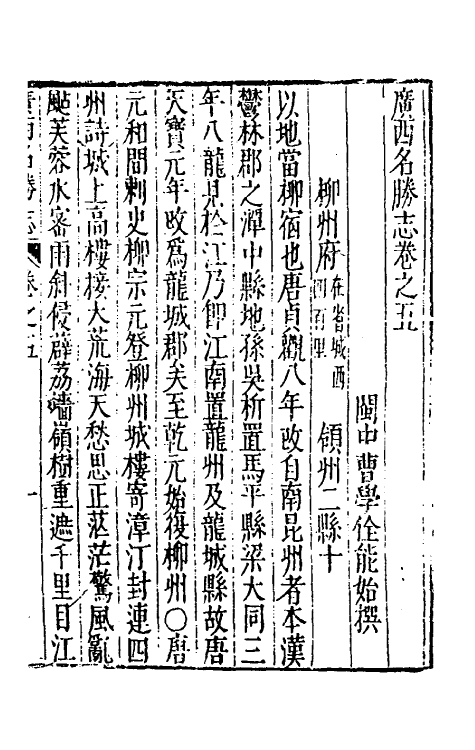 廣西名勝志卷之五
閩中曹學佺能始撰
柳州府在省城西四百里 領州二縣十
以地當柳宿也唐貞觀八年改自南昆州者本漢
鬱林郡之潭中縣地孫吳析置馬平縣梁大同三
年八龍見於江乃即江南置龍州及龍城縣故唐
天寶元年改爲龍城郡矣至乾元始復柳州〇唐
元和間刺史柳宗元登柳州城樓寄漳汀封連四
州詩城上高樓接大荒海天愁思正茫茫驚風亂
颭芙蓉水密雨斜侵薜荔墻嶺樹重遮千里目江
卷之五
一